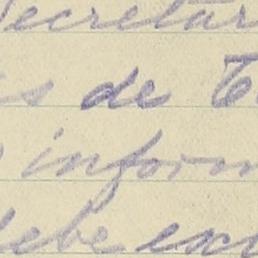 Secretar
s de T
inform
debe exc